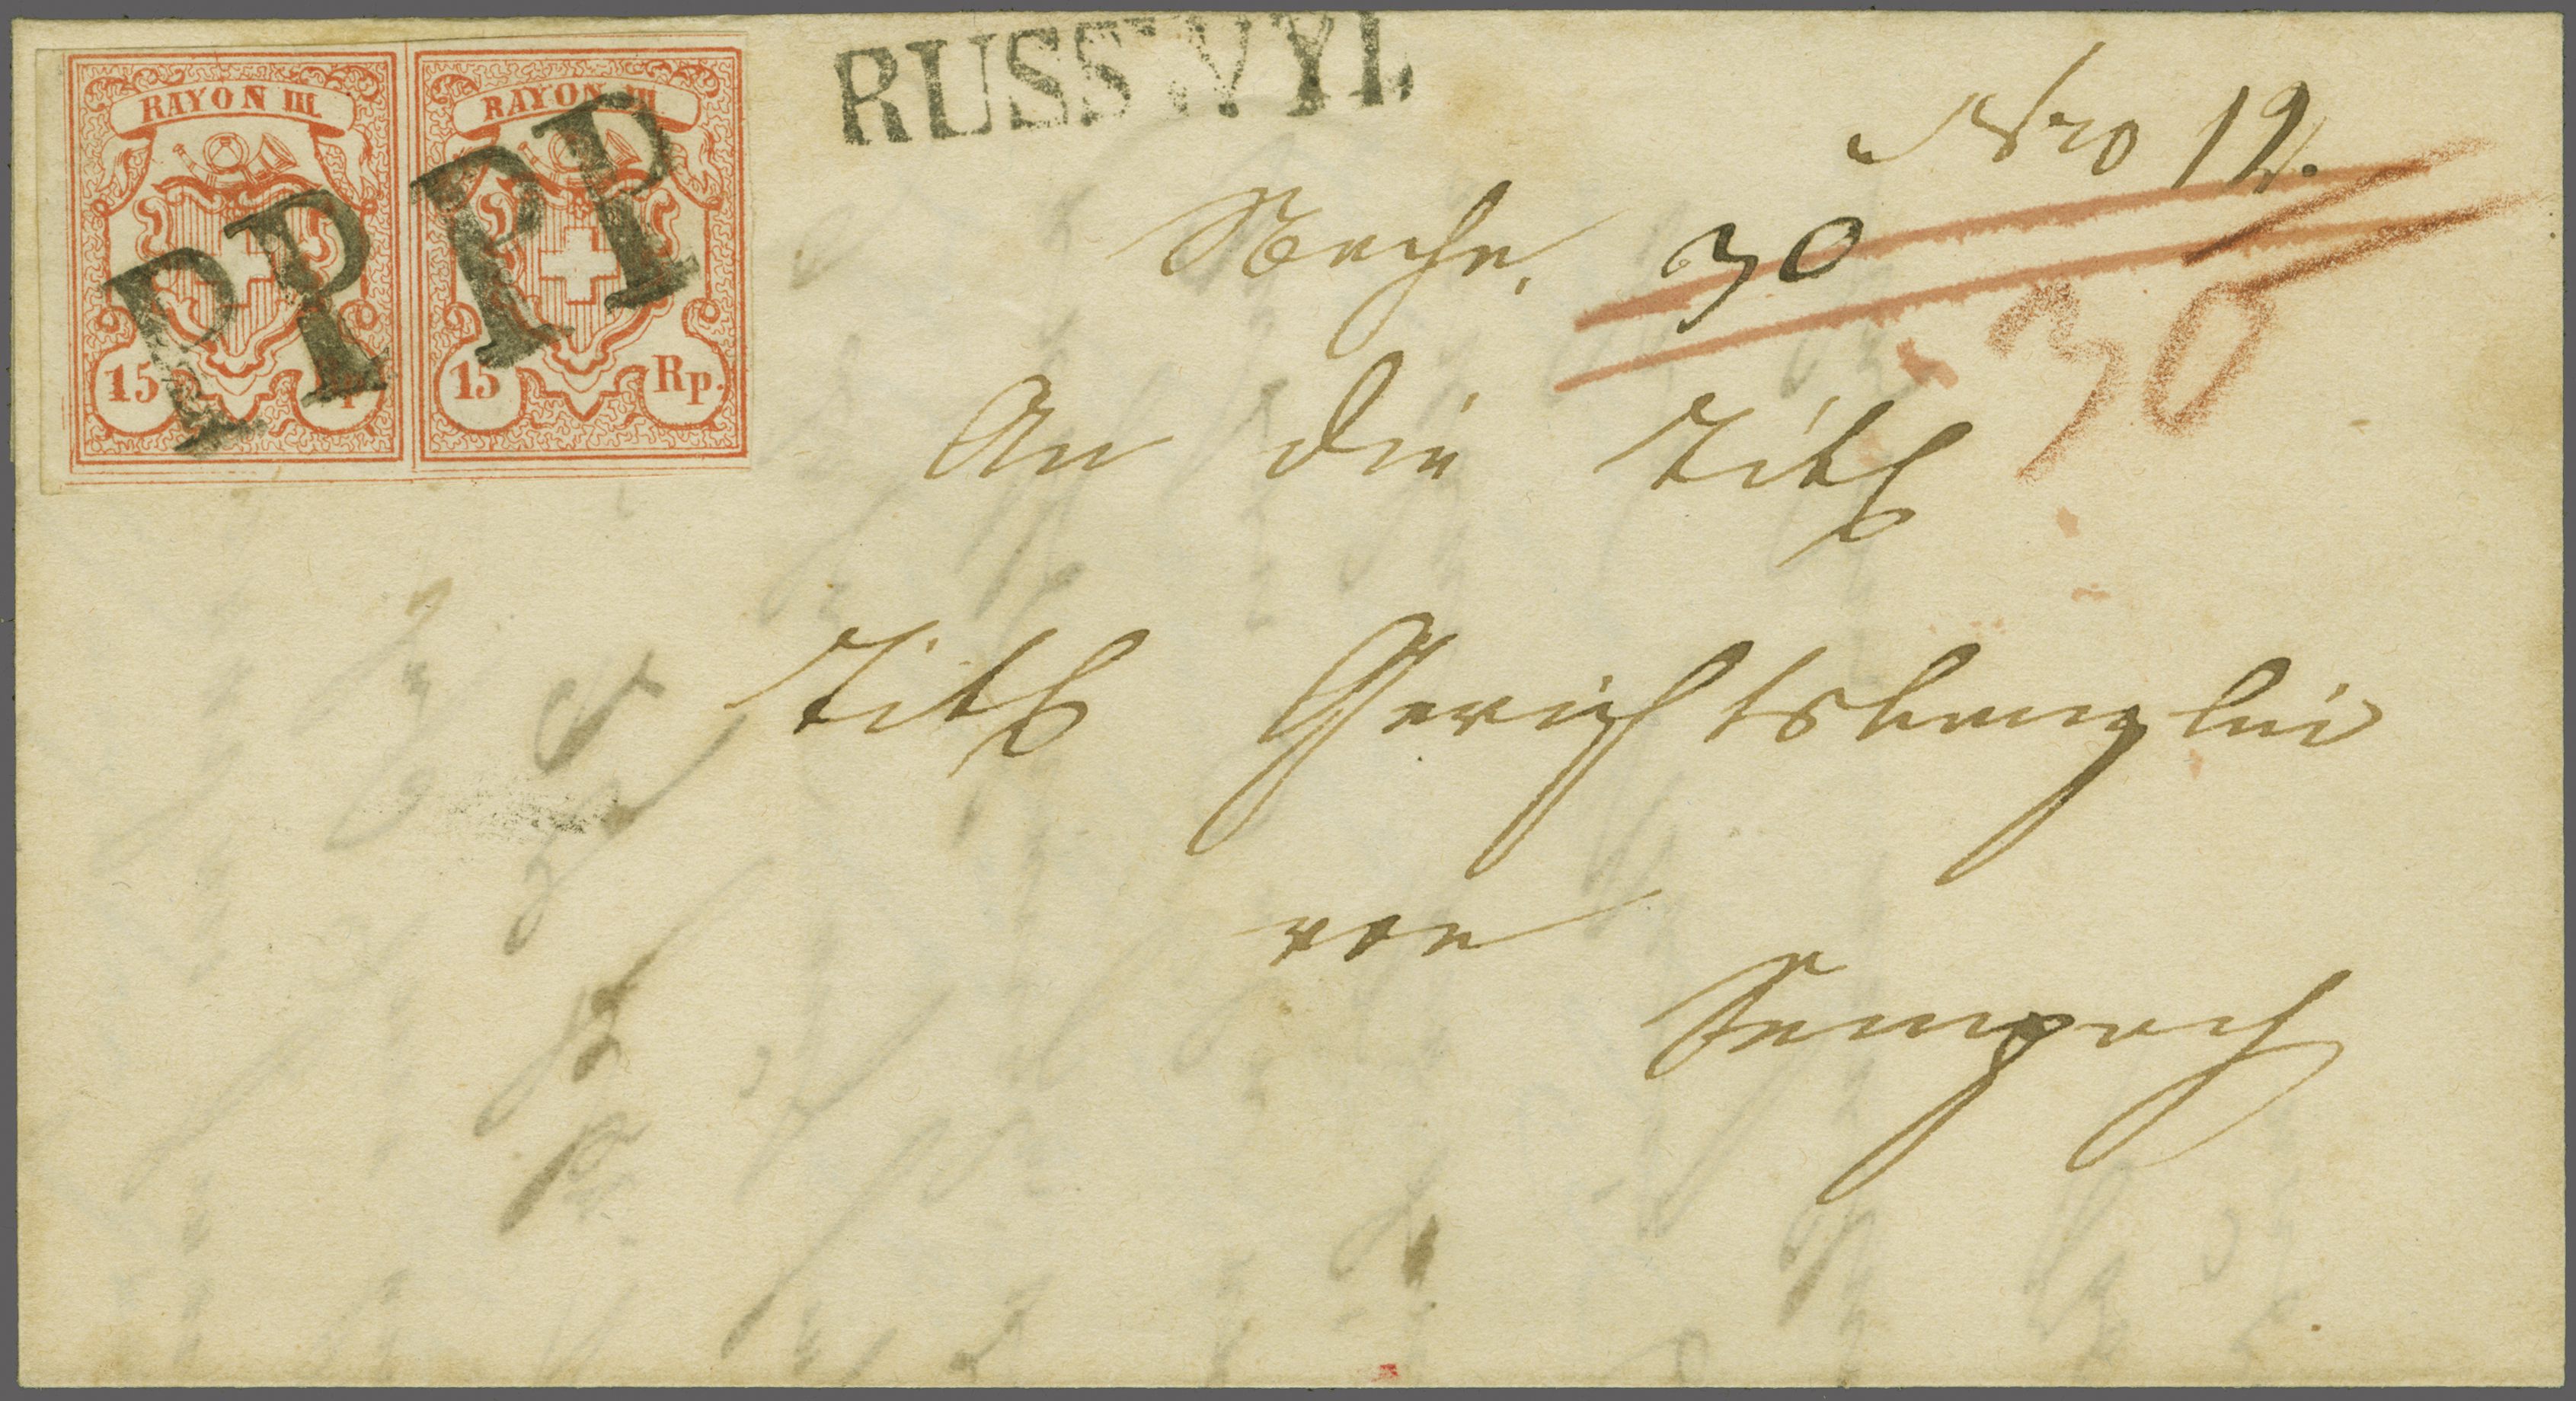 RAYON III RAYON III
15 Rp. 15 Rp.
PP PP
RUSSWYL
Nro 12.
Nachn. 30
30
An die Titl
Titl Gerichtskanzlei
von
Sempach